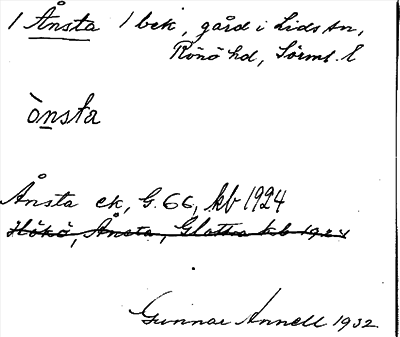 1 Ånsta 1 bck, gård i Lids sn,
Rönö hd, Sörml. l
ònsta
Ånsta ek, G. 66, kb 1924
Hökö, Ånsta, kb 1924
Gunnar Annell 1932.